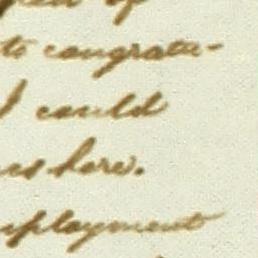 of
to congratu-
I could
here.
employment